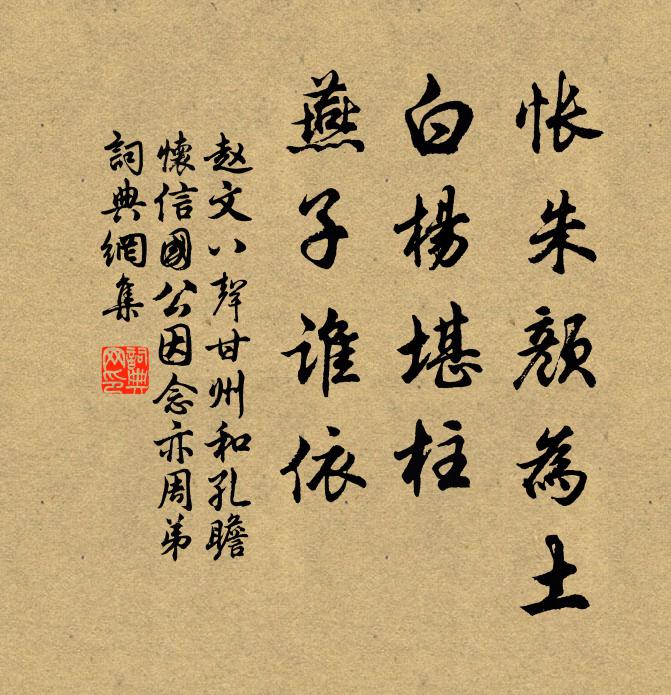 怅朱颜為土
白楊堪柱
燕子谁依
赵文八聲甘州和孔瞻
懷信國公因念亦周弟
詞典網集
詞典网印